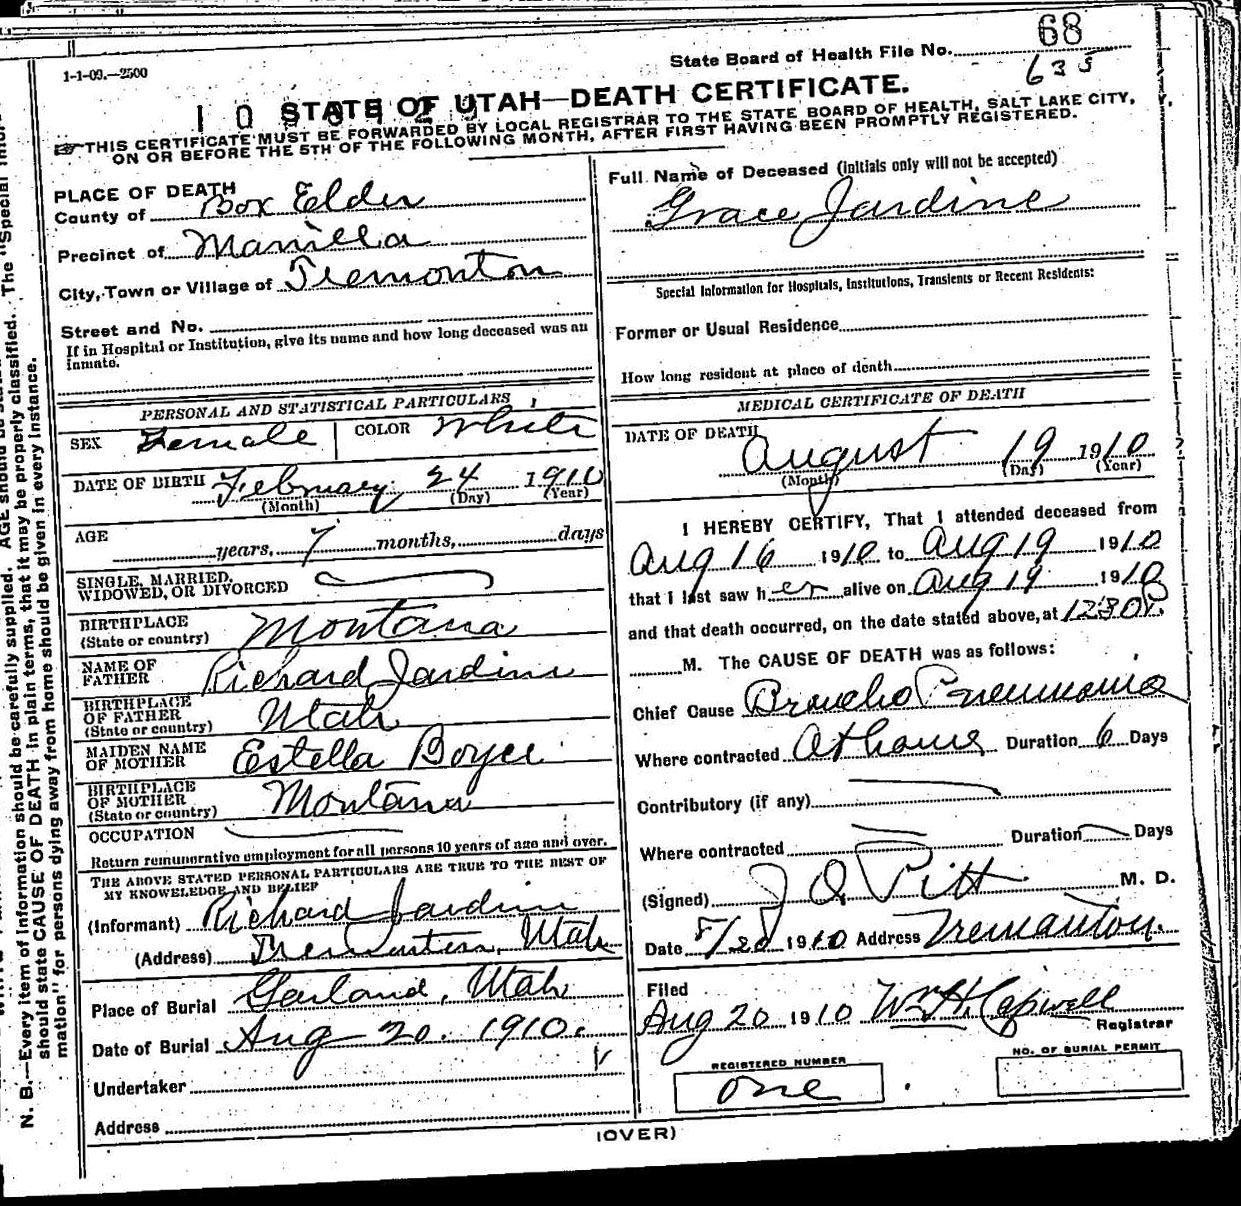 68
State Board of Health File No.
635
1-1-09.—2500
STATE OF UTAH—DEATH CERTIFICATE.
THIS CERTIFICATE MUST BE FORWARDED BY LOCAL REGISTRAR TO THE STATE BOARD OF HEALTH, SALT LAKE CITY,
ON OR BEFORE THE 5TH OF THE FOLLOWING MONTH, AFTER FIRST HAVING BEEN PROMPTLY REGISTERED.
PLACE OF DEATH
County of Box Elder
Precinct of Manilla
City, Town or Village of Tremonton
Street and No.
If in Hospital or Institution, give its name and how long deceased was an
inmate.
PERSONAL AND STATISTICAL PARTICULARS
SEX Female COLOR White
DATE OF BIRTH February 24 1910
(Month) (Day) (Year)
AGE years, 7 months, days
SINGLE, MARRIED,
WIDOWED, OR DIVORCED
BIRTHPLACE
(State or country) Montana
NAME OF
FATHER Richard Jardine
BIRTHPLACE
OF FATHER
(State or country) Utah
MAIDEN NAME
OF MOTHER Estella Boyce
BIRTHPLACE
OF MOTHER
(State or country) Montana
OCCUPATION
Return remunerative employment for all persons 10 years of age and over.
THE ABOVE STATED PERSONAL PARTICULARS ARE TRUE TO THE BEST OF
MY KNOWELEDGE AND BELIEF
(Informant) Richard Jardine
(Address) Tremonton, Utah
Place of Burial Garland, Utah
Date of Burial Aug 20. 1910.
Undertaker
Address
Full Name of Deceased (initials only will not be accepted)
Grace Jardine
Special Information for Hospitals, Institutions, Transients or Recent Residents:
Former or Usual Residence
How long resident at place of death
MEDICAL CERTIFICATE OF DEATH
DATE OF DEATH
August 19 1910
(Month) (Day) (Year)
I HEREBY CERTIFY, That I attended deceased from
Aug 16 1910 to Aug 19 1910
that I last saw her alive on Aug 19 1910
and that death occurred, on the date stated above, at 1230 P.
M. The CAUSE OF DEATH was as follows:
Chief Cause Broncho Pneumonia
Where contracted At home Duration 6 Days
Contributory (if any)
Where contracted Duration Days
(Signed) J Q Pitt M. D.
Date 8/20 1910 Address Tremanton.
Filed
Aug 20 1910 Wm H. Capwell
Registrar
REGISTERED NUMBER
one
NO. OF BURIAL PERMIT
(OVER)
N. B.—Every item of information should be carefully supplied. AGE should be
should state CAUSE OF DEATH in plain terms, that it may be properly classified. The "Special
mation" for persons dying away from home should be given in every instance.